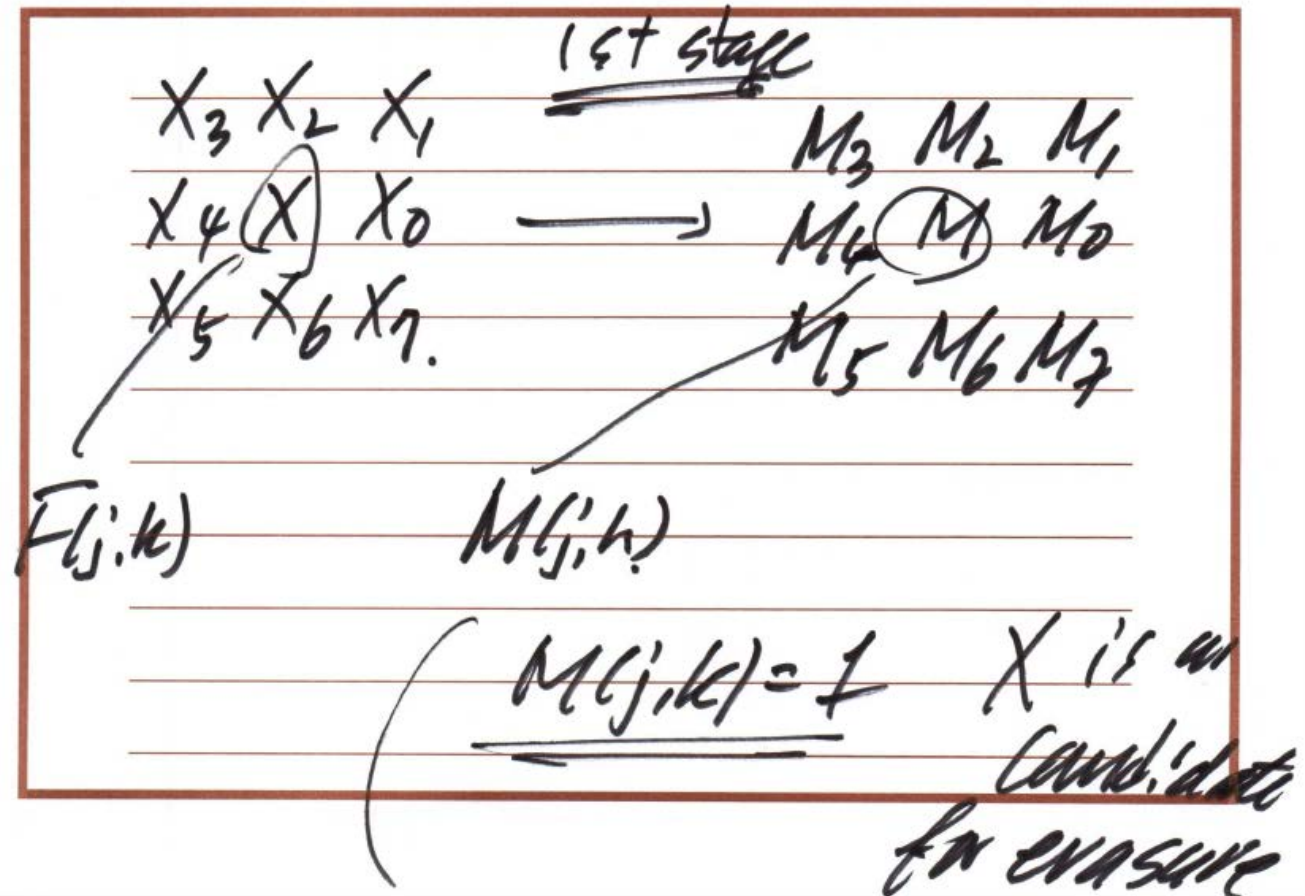 1st stage
X3 X2 X1
X4 X X0
X5 X6 X7.
M3 M2 M1
M4 M M0
M5 M6 M7
F(j,k)
M(j,k)
M(j,k)=1 X is a
candidate
for erasure